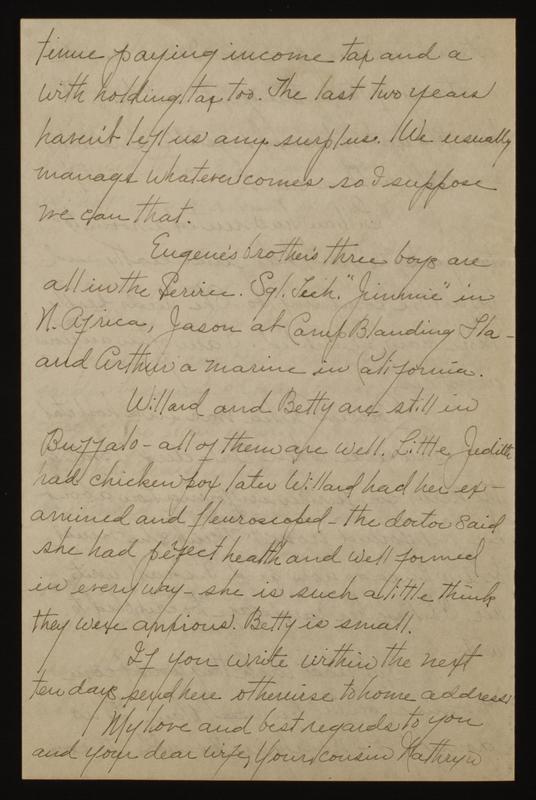 tinue paying income tax and a
with holding tax too. The last two years
haven't left us any surplus. We usually
manage whatever comes so I suppose
we can that.
Eugene's brother's three boys are
all in the Service. Sgt. Tech. "Jimmie" in
N. Africa, Jason at Camp Blanding Fla-
and Arthur a marine in California.
Willard and Betty are still in
Buffalo - all of them are well. Little Judith
had chicken pox later Willard had her ex-
amined and fleuroscoped - the doctor said
she had perfect health and well formed
in every way - she is such a little think
they were anxious. Betty is small.
If you write within the next
ten days send here otherwise to home address
My love and best regards to you
and your dear wife, Your cousin Kathryn